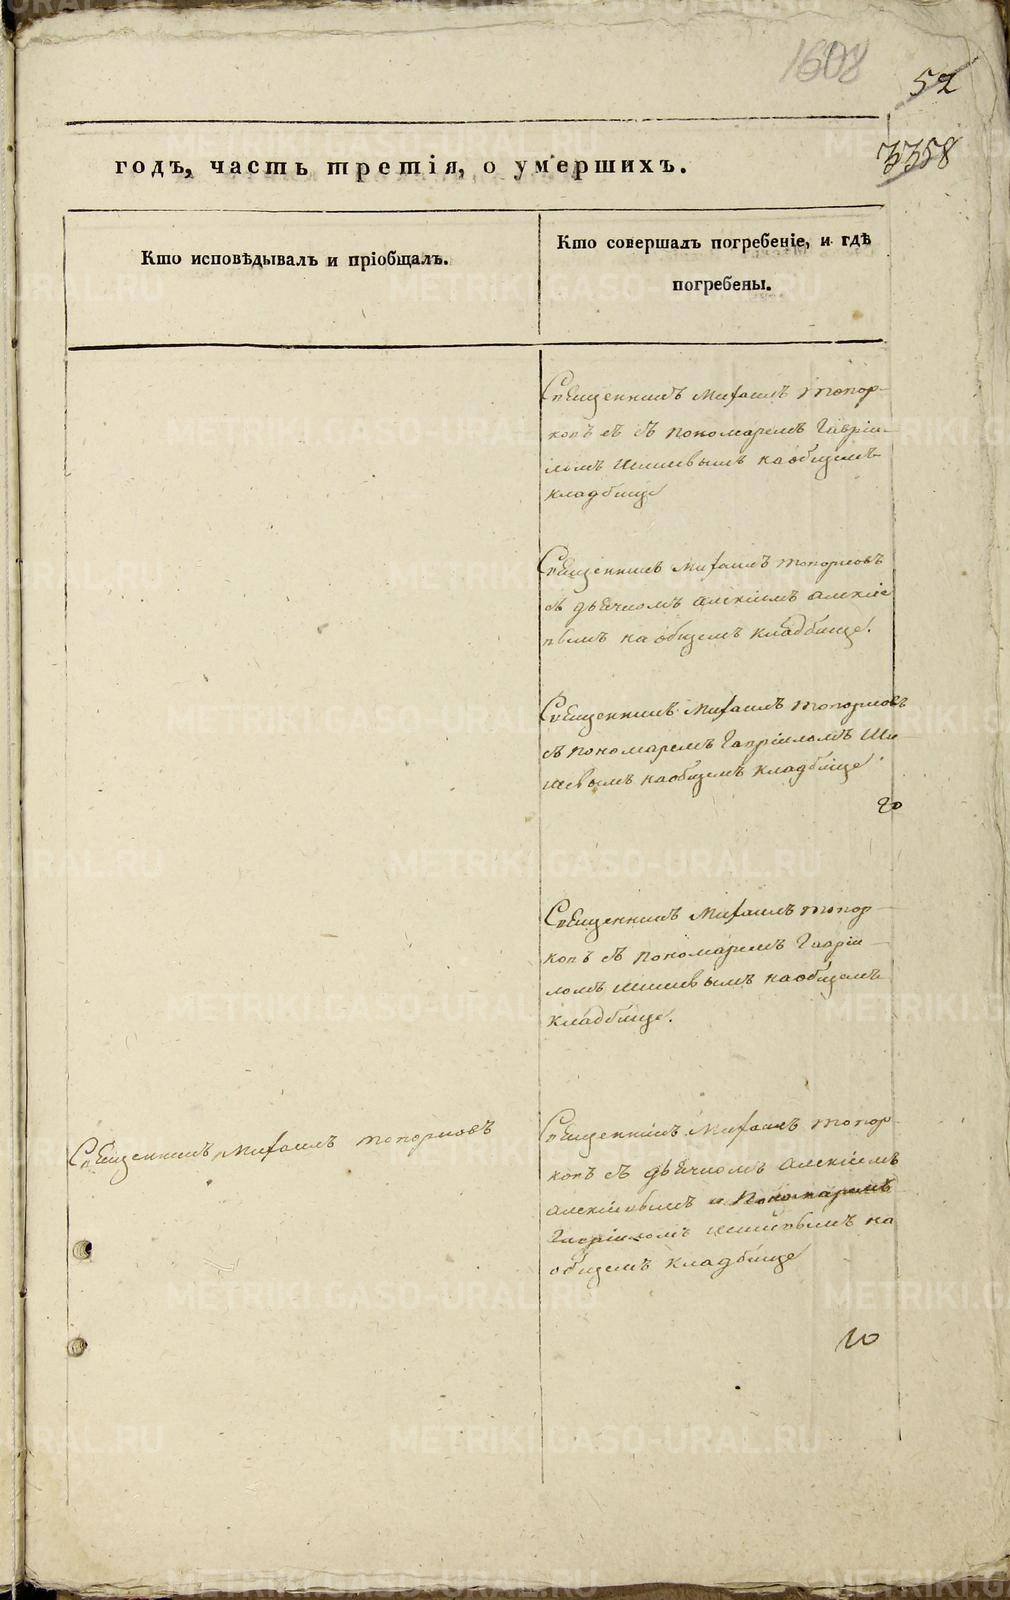 1608
52
3358
годъ, часть третія, о умершихъ.
Кто исповѣдывалъ и пріобщалъ.
Кто совершалъ погребеніе, и гдѣ
погребены.
Священникъ Михаилъ Топор-
ковъ съ пономаремъ Гавріи-
ломъ на общемъ
кладбище
Священникъ Михаилъ Топорковъ
съ дьячкомъ Алексіемъ Алексіе
вымъ на общемъ кладбище.
Священникъ Михаилъ Топорковъ
съ пономаремъ Гавріиломъ
на общемъ кладбище
20
Священникъ Михаилъ Топор-
ковъ съ пономаремъ Гавріи-
ломъ на общемъ
кладбище.
Священникъ Михаилъ Топорковъ
Священникъ Михаилъ Топор-
ковъ съ дьячкомъ Алексіемъ
Алексіевымъ и пономаремъ
Гавріиломъ на
общемъ кладбище
10
METRIKI.GASO-URAL.RU